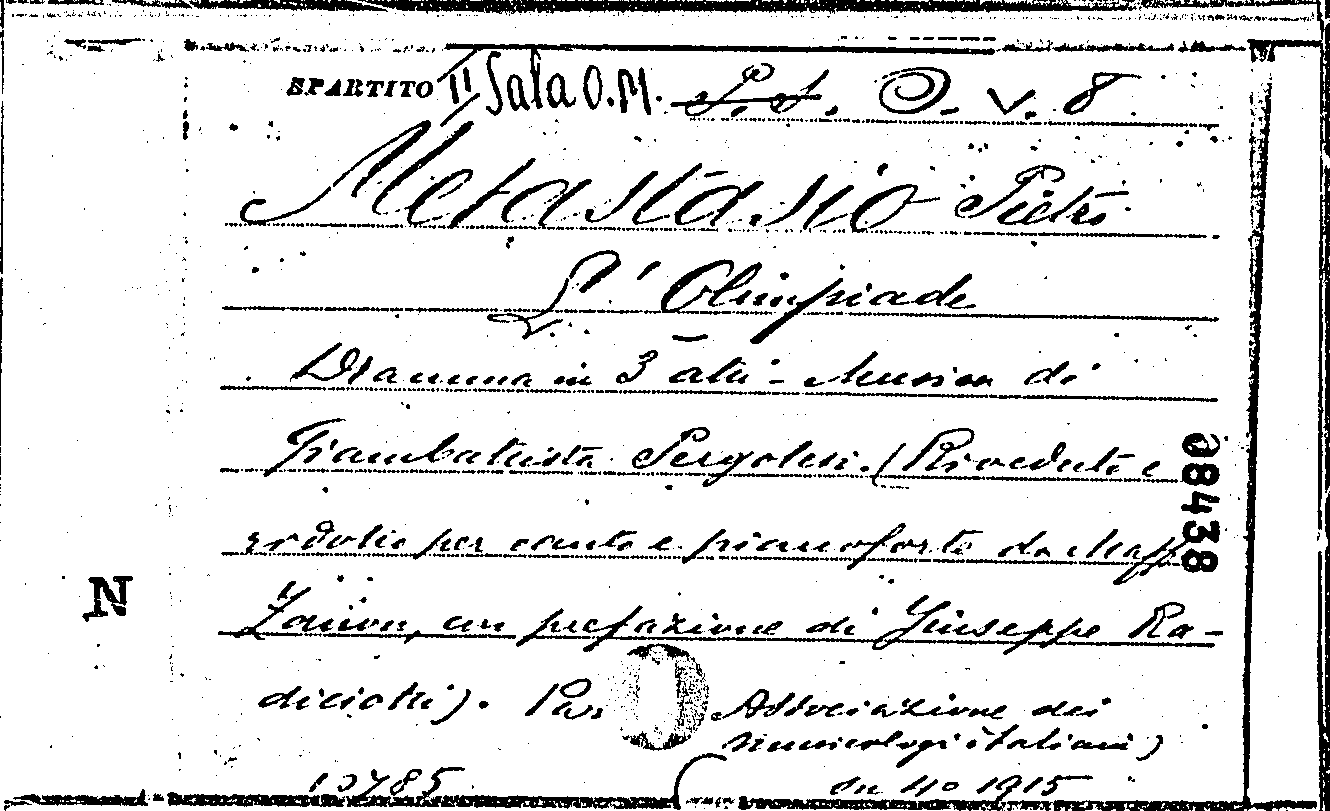 SPARTITO II Sala O.M. P.S. O. V. 8
Metastasio Pietro
L'Olimpiade
Dramma in 3 atti - Musica di
Giambattista Pergolesi. (Riveduto e
ridotto per canto e pianoforte da Maff
Zanon, con prefazione di Giuseppe Ra-
diciotti).
Associazione dei
musicologi italiani)
in 4o 1915
98438
N